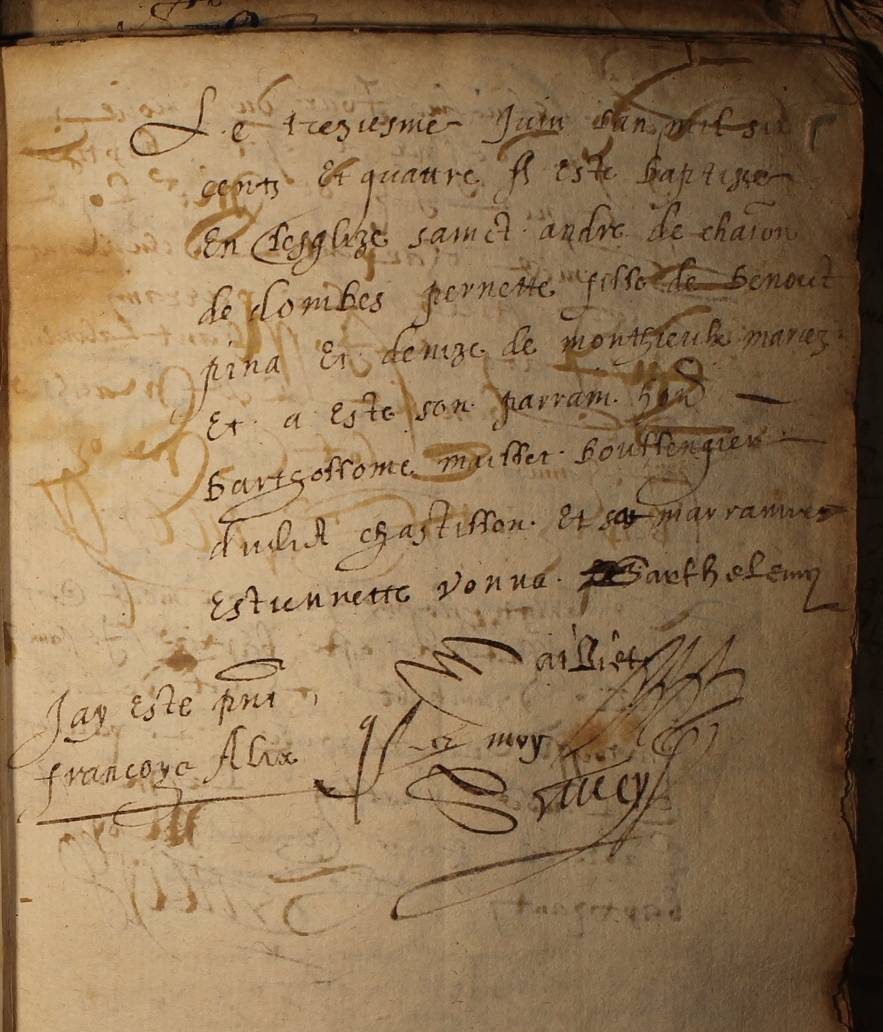 Le trezieme Juin lan mil six
cents et quattre A este baptizee
En Lesglize sainct andre de chaion
de dombes pernette fille de benoict
pina Et denize de monthieulx mariez
Et a Este son parrain hon
barthollome maillet boullengier
dudict chastillon Et sa marraine
Estiennette vonna Barthelemy
Mailliet
Jay este pnt
francoys Alix
moy